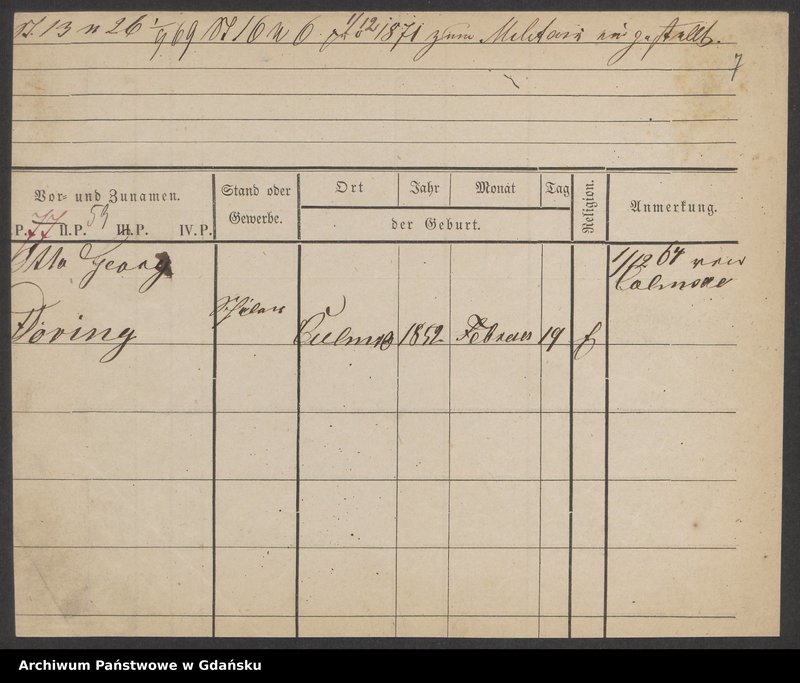 St. 13 u 26 1/4 69 St 16 u 6. 1/12 1871 zum Militair eingestellt.
7
Vor- und Zunamen.
Stand oder Gewerbe.
Ort Jahr Monat Tag
der Geburt.
Religion.
Anmerkung.
P. 77 II.P. 59 III.P. IV.P.
Otto Georg
1/12 67 von
Colmsee
Schüler
Döring Culmsee 1852 Februar 19 E
Archiwum Państwowe w Gdańsku